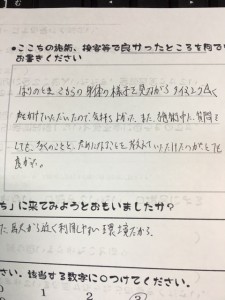 ●ここちの施術、接客等で良かったところを何で
お書きください
はりのとき、こちらの身体の様子を見ながらタイミングよく
声をかけていただいたので、気持ちよかった。また、施術中に、質問を
しても、なくのことと、ためになることを、教えていただけたのがとても
良かった。
ち」に来てみようとおもいましたか？
た。駅から近く利用しやすい環境だから。
さい。該当する数字に○つけてください。
1 2 3